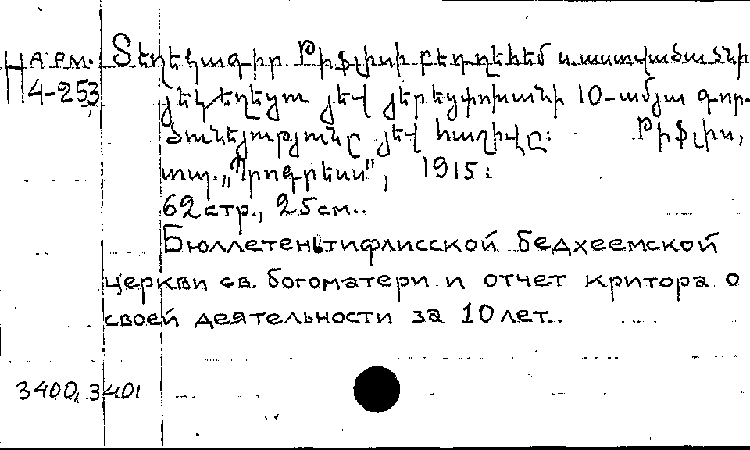 Տեղեկագիր Թիֆլիսի բեդղեհեմ աստվածածնի
АРМ.
4-253
յեկեղեցու յեվ յերեցփոխանի 10-ամյա գոր-
ծունեյությունը յեվ հաշիվը: Թիֆլիս,
տպ. „Պրոգրեսս", 1915:
62 стр., 25 см..
Бюллетень тифлисской бедхеемской
церкви св. богоматери и отчет критора о
своей деятельности за 10 лет..
3400, 3401